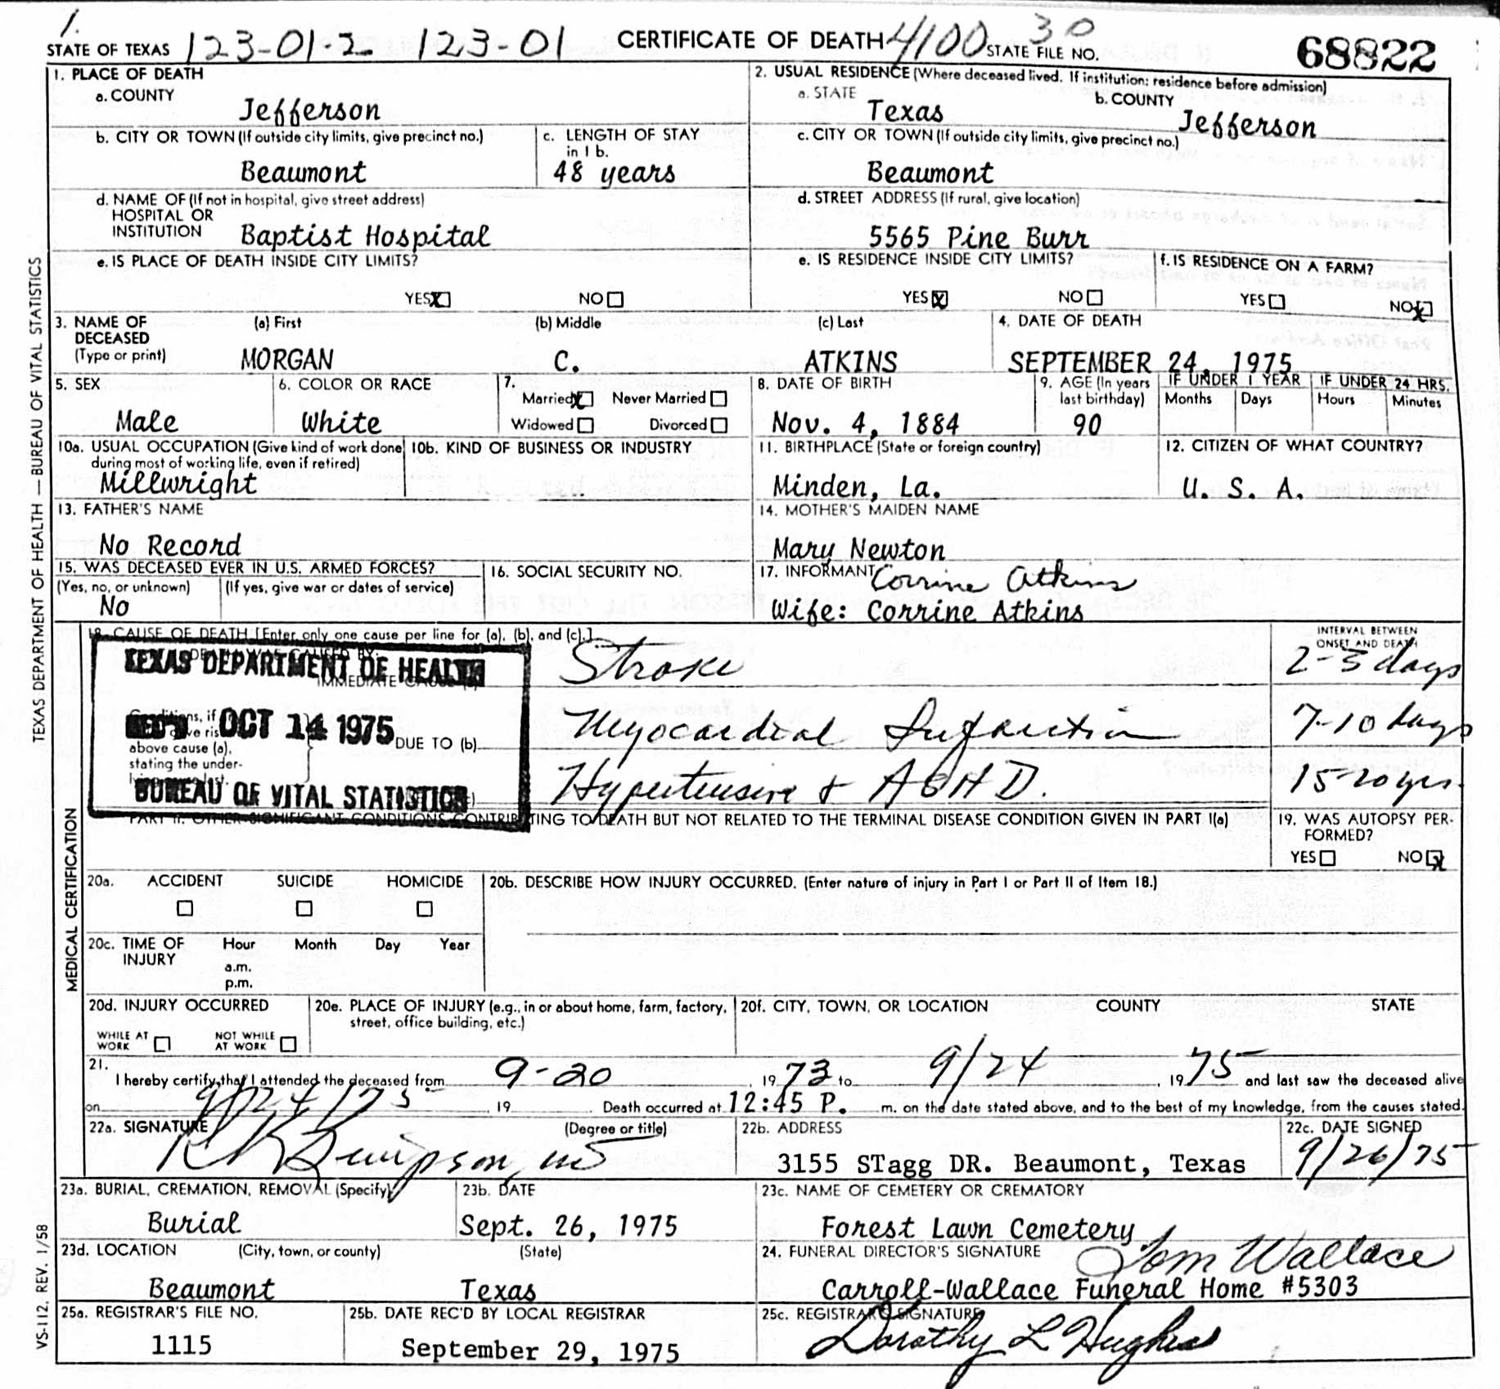 1.
STATE OF TEXAS 123-01-2 123-01 CERTIFICATE OF DEATH 4100 30 STATE FILE NO. 68822
1. PLACE OF DEATH
a. COUNTY
Jefferson
2. USUAL RESIDENCE (Where deceased lived. If institution: residence before admission)
a. STATE
Texas
b. COUNTY
Jefferson
b. CITY OR TOWN (If outside city limits, give precinct no.)
Beaumont
c. LENGTH OF STAY
in 1 b.
48 years
c. CITY OR TOWN (If outside city limits, give precinct no.)
Beaumont
d. NAME OF (If not in hospital, give street address)
HOSPITAL OR
INSTITUTION Baptist Hospital
d. STREET ADDRESS (If rural, give location)
5565 Pine Burr
e. IS PLACE OF DEATH INSIDE CITY LIMITS?
YES X NO
e. IS RESIDENCE INSIDE CITY LIMITS?
YES X NO
f. IS RESIDENCE ON A FARM?
YES NO X
3. NAME OF
DECEASED
(Type or print)
(a) First (b) Middle (c) Last
MORGAN C. ATKINS
4. DATE OF DEATH
SEPTEMBER 24, 1975
5. SEX
Male
6. COLOR OR RACE
White
7.
Married X Never Married
Widowed Divorced
8. DATE OF BIRTH
Nov. 4, 1884
9. AGE (In years
last birthday)
90
IF UNDER 1 YEAR
Months Days
IF UNDER 24 HRS.
Hours Minutes
10a. USUAL OCCUPATION (Give kind of work done
during most of working life, even if retired)
Millwright
10b. KIND OF BUSINESS OR INDUSTRY
11. BIRTHPLACE (State or foreign country)
Minden, La.
12. CITIZEN OF WHAT COUNTRY?
U. S. A.
13. FATHER'S NAME
No Record
14. MOTHER'S MAIDEN NAME
Mary Newton
15. WAS DECEASED EVER IN U.S. ARMED FORCES?
(Yes, no, or unknown) (If yes, give war or dates of service)
No
16. SOCIAL SECURITY NO.
17. INFORMANT Corrine Atkins
Wife: Corrine Atkins
18. CAUSE OF DEATH [Enter only one cause per line for (a), (b), and (c).]
INTERVAL BETWEEN
ONSET AND DEATH
TEXAS DEPARTMENT OF HEALTH
REC'D OCT 14 1975
BUREAU OF VITAL STATISTICS
IMMEDIATE CAUSE (a) Stroke 2-5 days
Conditions, if
above cause (a),
stating the under-
lying cause last.
DUE TO (b) Myocardial Infarction 7-10 days
Hypertensive + ASHD. 15-20 yrs.
PART II. OTHER SIGNIFICANT CONDITIONS CONTRIBUTING TO DEATH BUT NOT RELATED TO THE TERMINAL DISEASE CONDITION GIVEN IN PART I(a)
19. WAS AUTOPSY PER-
FORMED?
YES NO X
20a. ACCIDENT SUICIDE HOMICIDE
20b. DESCRIBE HOW INJURY OCCURRED. (Enter nature of injury in Part I or Part II of Item 18.)
20c. TIME OF
INJURY
Hour Month Day Year
a.m.
p.m.
20d. INJURY OCCURRED
WHILE AT
WORK
NOT WHILE
AT WORK
20e. PLACE OF INJURY (e.g., in or about home, farm, factory,
street, office building, etc.)
20f. CITY, TOWN, OR LOCATION COUNTY STATE
21.
I hereby certify that I attended the deceased from 9-20, 1973 to 9/24, 1975 and last saw the deceased alive
on 9/24/75 19 Death occurred at 12:45 P. m. on the date stated above, and to the best of my knowledge, from the causes stated.
22a. SIGNATURE (Degree or title)
22b. ADDRESS
3155 STagg DR. Beaumont, Texas
22c. DATE SIGNED
9/26/75
23a. BURIAL, CREMATION, REMOVAL (Specify)
Burial
23b. DATE
Sept. 26, 1975
23c. NAME OF CEMETERY OR CREMATORY
Forest Lawn Cemetery
23d. LOCATION (City, town, or county) (State)
Beaumont Texas
24. FUNERAL DIRECTOR'S SIGNATURE Tom Wallace
Carroll-Wallace Funeral Home #5303
25a. REGISTRAR'S FILE NO.
1115
25b. DATE REC'D BY LOCAL REGISTRAR
September 29, 1975
25c. REGISTRAR'S SIGNATURE
Dorothy L Hughes
TEXAS DEPARTMENT OF HEALTH — BUREAU OF VITAL STATISTICS
MEDICAL CERTIFICATION
VS-112, REV. 1/58